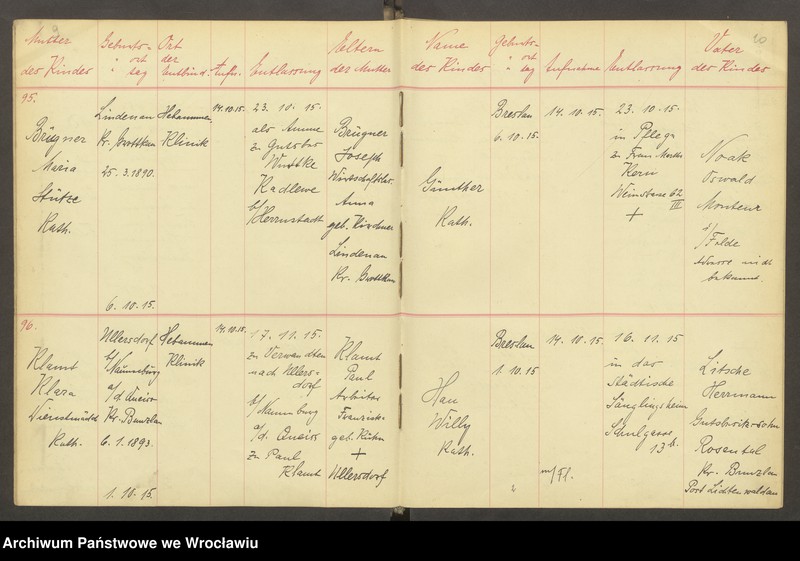 Mutter
der Kinder
Geburts-
" ort
" tag
Ort
der
Entbind.
Aufn.
Entlassung
Eltern
der Mutter
Name
der Kinder
Geburts-
ort
" tag
Aufnahme
Entlassung
Vater
der Kinder
20
95.
Brügner
Maria
Stütze
Kath.
Lindenau
Kr. Grottkau
25.3.1890.
6.10.15.
Hebammen
Klinik
14.10.15.
23.10.15.
als Amme
zu Gutsbes
Wuttke
Kadlewe
b/Herrnstadt
Brügner
Joseph
Anna
geb. Kirchner
Lindenau
Kr. Grottkau
Günther
Kath.
Breslau
6.10.15.
14.10.15.
23.10.15.
in Pflege
z. Frau Martha
Kern
Weinstrasse 62
III
+
Noak
Oswald
Monteur
i/Felde
Adresse nicht
bekannt.
96.
Klamt
Klara
Dienstmädch
Kath.
Ullersdorf
b/Naumburg
a/d Queiss
Kr. Bunzlau
6.1.1893.
1.10.15.
Hebammen
Klinik
14.10.15.
17.11.15.
zu Verwandten
nach Ullers-
dorf
b/Naumburg
a/d. Queiss
zu Paul
Klamt
Klamt
Paul
Arbeiter
Franziska
geb. Kuhn
+
Ullersdorf
Willy
Kath.
Breslau
1.10.15
14.10.15
16.11.15
in das
Städtische
Säuglingsheim
Schulgasse
13b.
Litsche
Herrmann
Gutsbesitzerssohn
Rosental
Kr. Bunzlau
Post Lichtenwaldau
Archiwum Państwowe we Wrocławiu